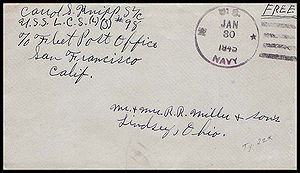 Carol S. Knipp, S 1/c
U.S.S. L.C.S. (L) (3) #98
c/o Fleet Post Office
San Francisco
Calif.
U.S.
JAN
30
1945
NAVY
FREE
Mr. & Mrs. R. R. Miller & Sons
Lindsey, Ohio.